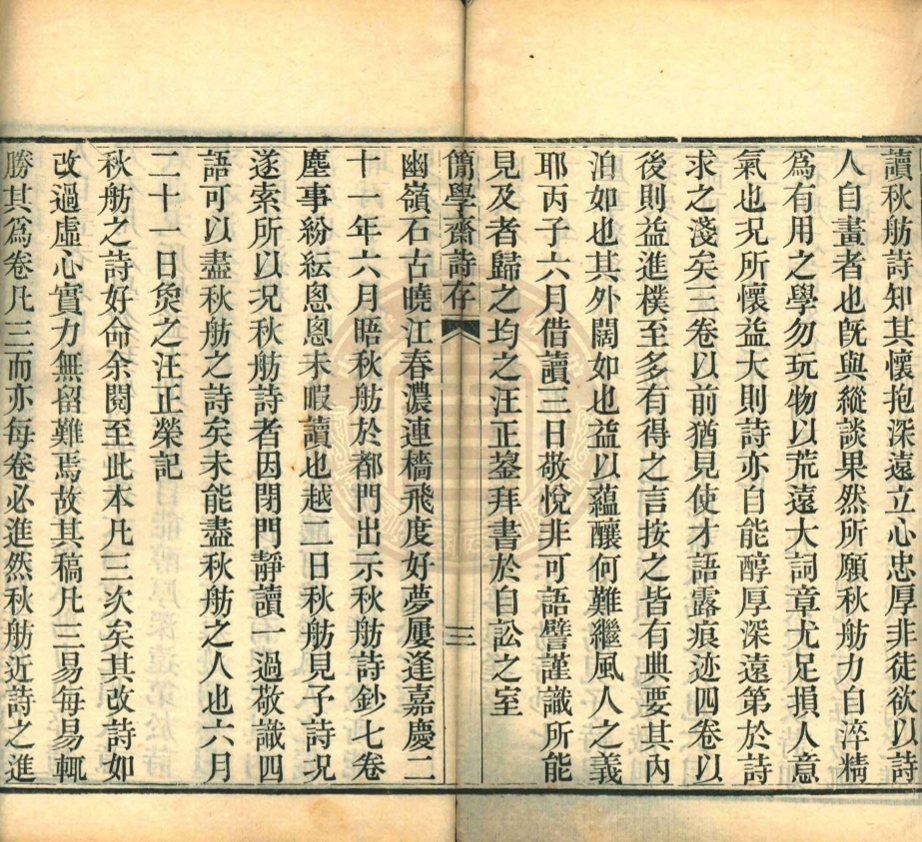 讀秋舫詩知其懷抱深遠立心忠厚非徒欲以詩
人自畫者也旣與縱談果然所願秋舫力自淬精
爲有用之學勿玩物以荒遠大詞章尤足損人意
氣也況所懷益大則詩亦自能醇厚深遠第於詩
求之淺矣三卷以前猶見使才語露痕迹四卷以
後則益進樸至多有得之言按之皆有典要其內
泊如也其外闊如也益以蘊釀何難繼風人之義
耶丙子六月借讀三日敬悅非可語譬謹識所能
見及者歸之均之汪正鋆拜書於自訟之室
簡學齋詩存 三
幽嶺石古曉江春濃連檣飛度好夢屢逢嘉慶二
十一年六月晤秋舫於都門出示秋舫詩鈔七卷
塵事紛紜悤悤未暇讀也越二日秋舫見予詩況
遂索所以況秋舫詩者因閉門靜讀一過敬識四
語可以盡秋舫之詩矣未能盡秋舫之人也六月
二十一日奐之汪正榮記
秋舫之詩好命余閱至此本凡三次矣其改詩如
改過虛心實力無留難焉故其稿凡三易每易輒
勝其爲卷凡三而亦每卷必進然秋舫近詩之進